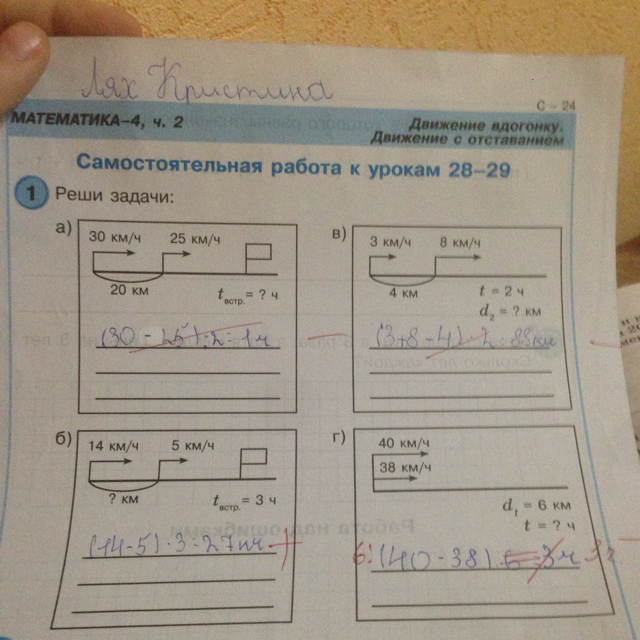 Лях Кристина
С – 24
МАТЕМАТИКА–4, ч. 2
Движение вдогонку.
Движение с отставанием
Самостоятельная работа к урокам 28–29
1 Реши задачи:
а)
30 км/ч 25 км/ч
20 км
tвстр. = ? ч
(30 - 25) : 2 = 1 ч
в)
3 км/ч 8 км/ч
4 км
t = 2 ч
d₂ = ? км
(3+8-4) · 2 = 88 км
б)
14 км/ч 5 км/ч
? км
tвстр. = 3 ч
(14-5) · 3 = 27 км
г)
40 км/ч
38 км/ч
d₁ = 6 км
t = ? ч
6: (40 - 38) 6 = 3 ч 3ч
Работа над ошибками